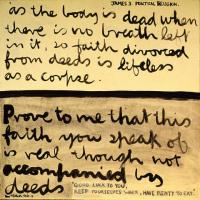 JAMES 2. PONTICAL RELIGION.
as the body is dead when
there is no breath left
in it, so faith divorced
from deeds is lifeless
as a corpse.
Prove to me that this
faith you speak of
is real though not
accompanied by
deeds
"GOOD LUCK TO YOU,
KEEP YOURSELVES WARM, HAVE PLENTY TO EAT."